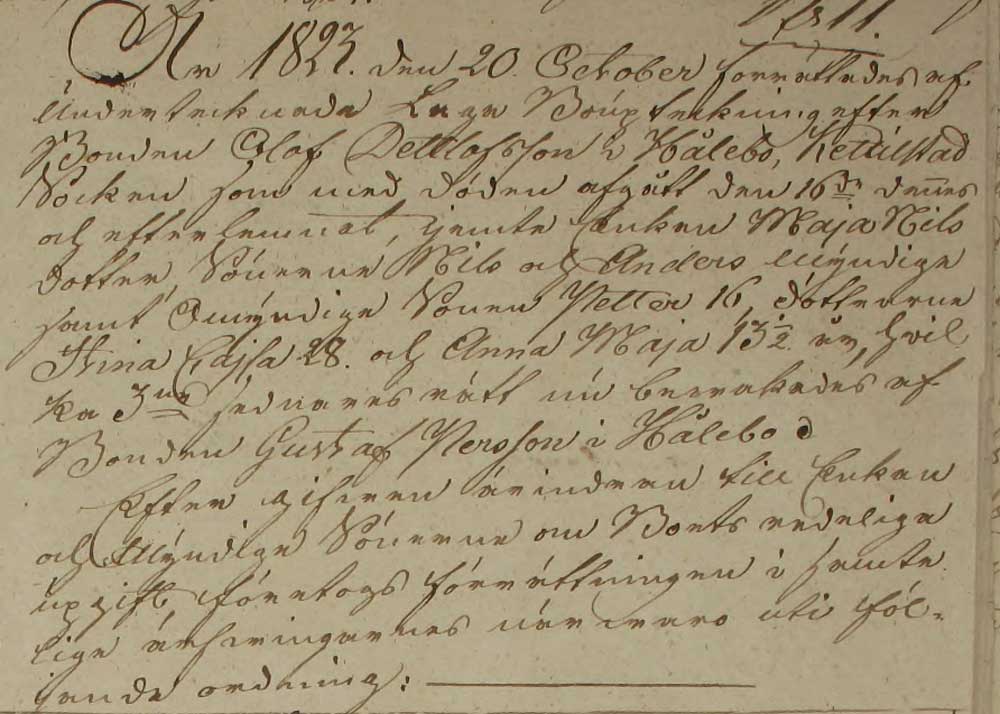 År 1823. den 20 October förrättades af
Undertecknade Laga Bouptekning efter
Bonden Olof Dettlofsson i Hålebo, Ketilstad
Socken som med döden afgått den 16de dennes
och efterlemnat, jemte Enkan Maja Nils
dotter, Sönerne Nils och Anders Myndige
samt Omyndige Sonen Petter 16, dottrarne
Stina Cajsa 28. och Anna Maja 13½ år, hvil
ka 3ne sednares rätt nu bevakades af
Bonden Gustaf Persson i Hålebo
Efter gifven ärindran till Enkan
och Myndige Sönerne om Boets redelige
upgift, företogs förrättningen i Samte
lige arfvingarnes närvaro uti föl-
jande ordning: